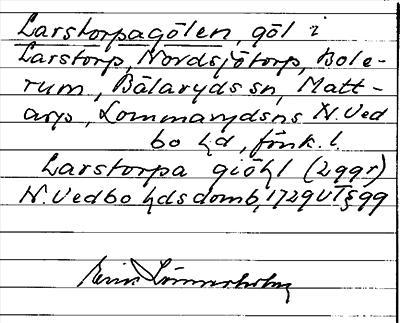 Larstorpagölen, göl i
Larstorp, Nordsjötorp, Bole-
rum, Bälaryds sn, Matt-
arp, Lommaryds sn N. Ved
bo hd, förk. l.
Larstorpa giöhl (2 ggr)
N. Vedbo hds domb, 1729 VT § 99